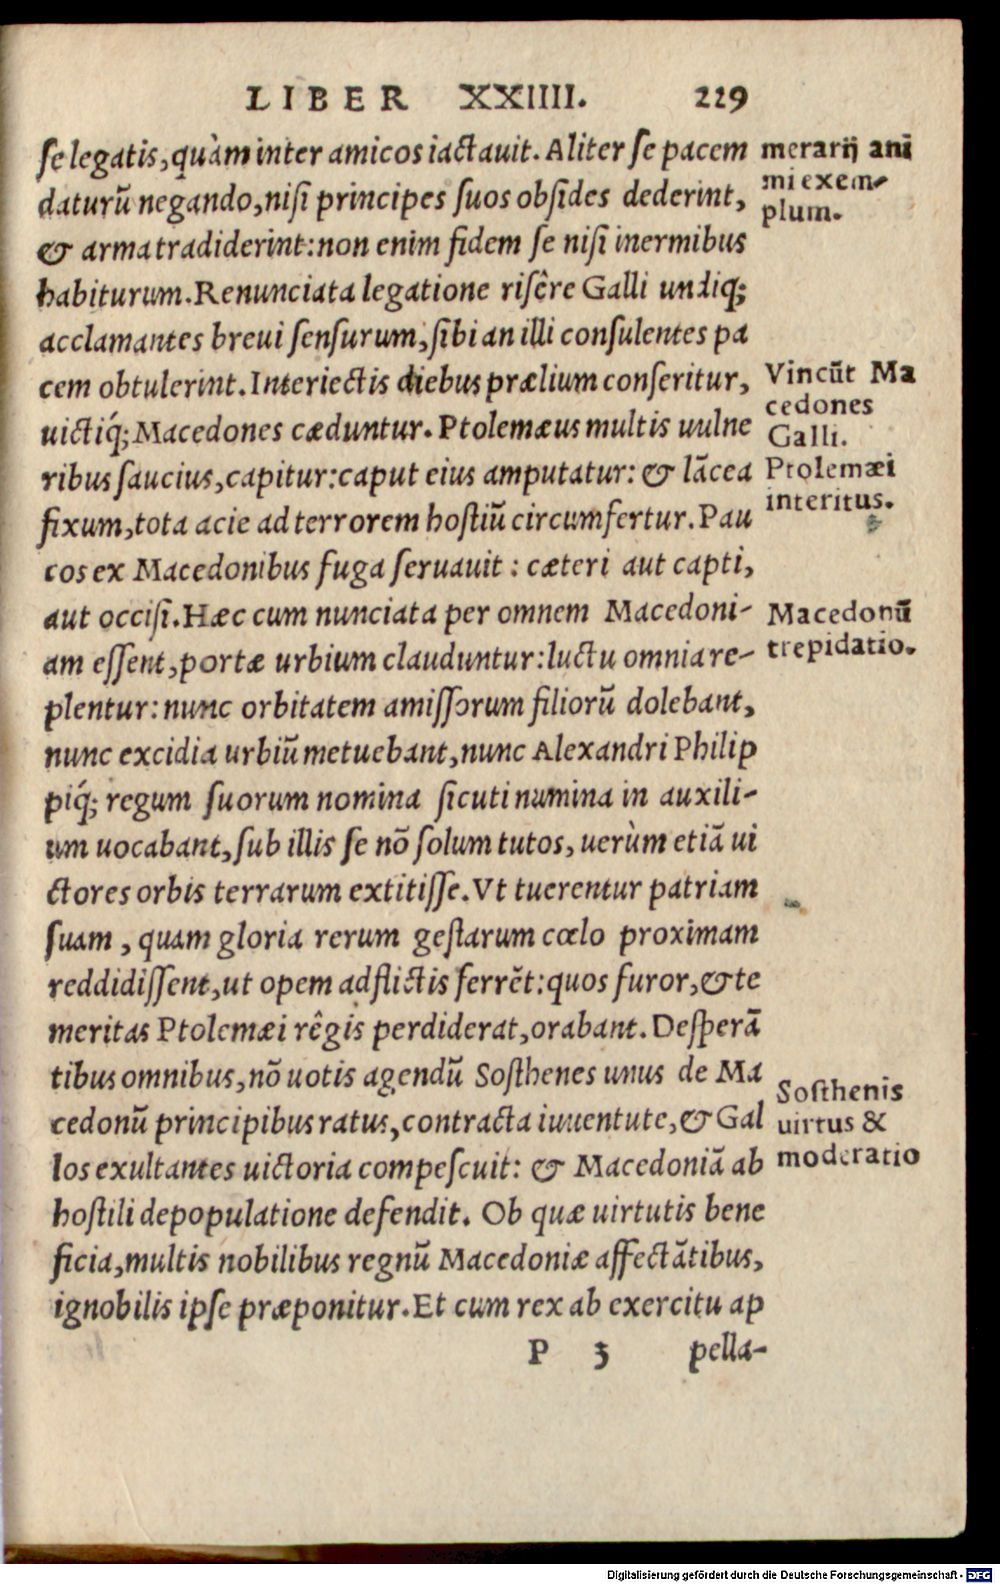 LIBER XXIIII. 229
se legatis, quàm inter amicos iactauit. Aliter se pacem
daturū negando, nisi principes suos obsides dederint,
& arma tradiderint: non enim fidem se nisi inermibus
habiturum. Renunciata legatione risêre Galli undiq;
acclamantes breui sensurum, sibi an illi consulentes pa
cem obtulerint. Interiectis diebus prælium conseritur,
uictiq́; Macedones cæduntur. Ptolemæus multis uulne
ribus saucius, capitur: caput eius amputatur: & lācea
fixum, tota acie ad terrorem hostiū circumfertur. Pau
cos ex Macedonibus fuga seruauit: cæteri aut capti,
aut occisi. Hæc cum nunciata per omnem Macedoni-
am essent, portæ urbium clauduntur: luctu omnia re-
plentur: nunc orbitatem amissorum filiorū dolebant,
nunc excidia urbiū metuebant, nunc Alexandri Philip
piq́; regum suorum nomina sicuti numina in auxili-
um uocabant, sub illis se nō solum tutos, uerùm etiā ui
ctores orbis terrarum extitisse. Vt tuerentur patriam
suam, quam gloria rerum gestarum cœlo proximam
reddidissent, ut opem adflictis ferrēt: quos furor, & te
meritas Ptolemæi rêgis perdiderat, orabant. Desperā
tibus omnibus, nō uotis agendū Sosthenes unus de Ma
cedonū principibus ratus, contracta iuuentute, & Gal
los exultantes uictoria compescuit: & Macedoniā ab
hostili depopulatione defendit. Ob quæ uirtutis bene
ficia, multis nobilibus regnū Macedoniæ affectātibus,
ignobilis ipse præponitur. Et cum rex ab exercitu ap
P 3 pella-
merarij ani
mi exem-
plum.
Vincūt Ma
cedones
Galli.
Ptolemæi
interitus.
Macedonū
trepidatio.
Sosthenis
uirtus &
moderatio
Digitalisierung gefördert durch die Deutsche Forschungsgemeinschaft - DFG